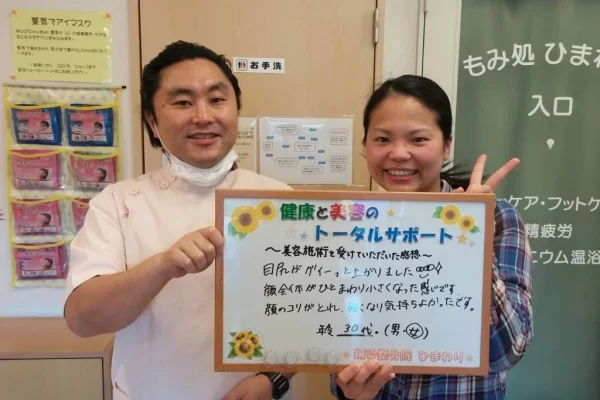 蒸気でアイマスク
お手洗
もみ処 ひまわ
入口
ケア・フットケ
精疲労
ニウム温浴
健康と美容の
トータルサポート
～美容施術を受けていただいた感想～
目尻がグイーっと上がりました
顔全体がひとまわり小さくなった感じです
顔のコリがとれ、軽くなり気持ちよかったです。
年令 30代 (男・女)
鎌谷整骨院 ひまわり